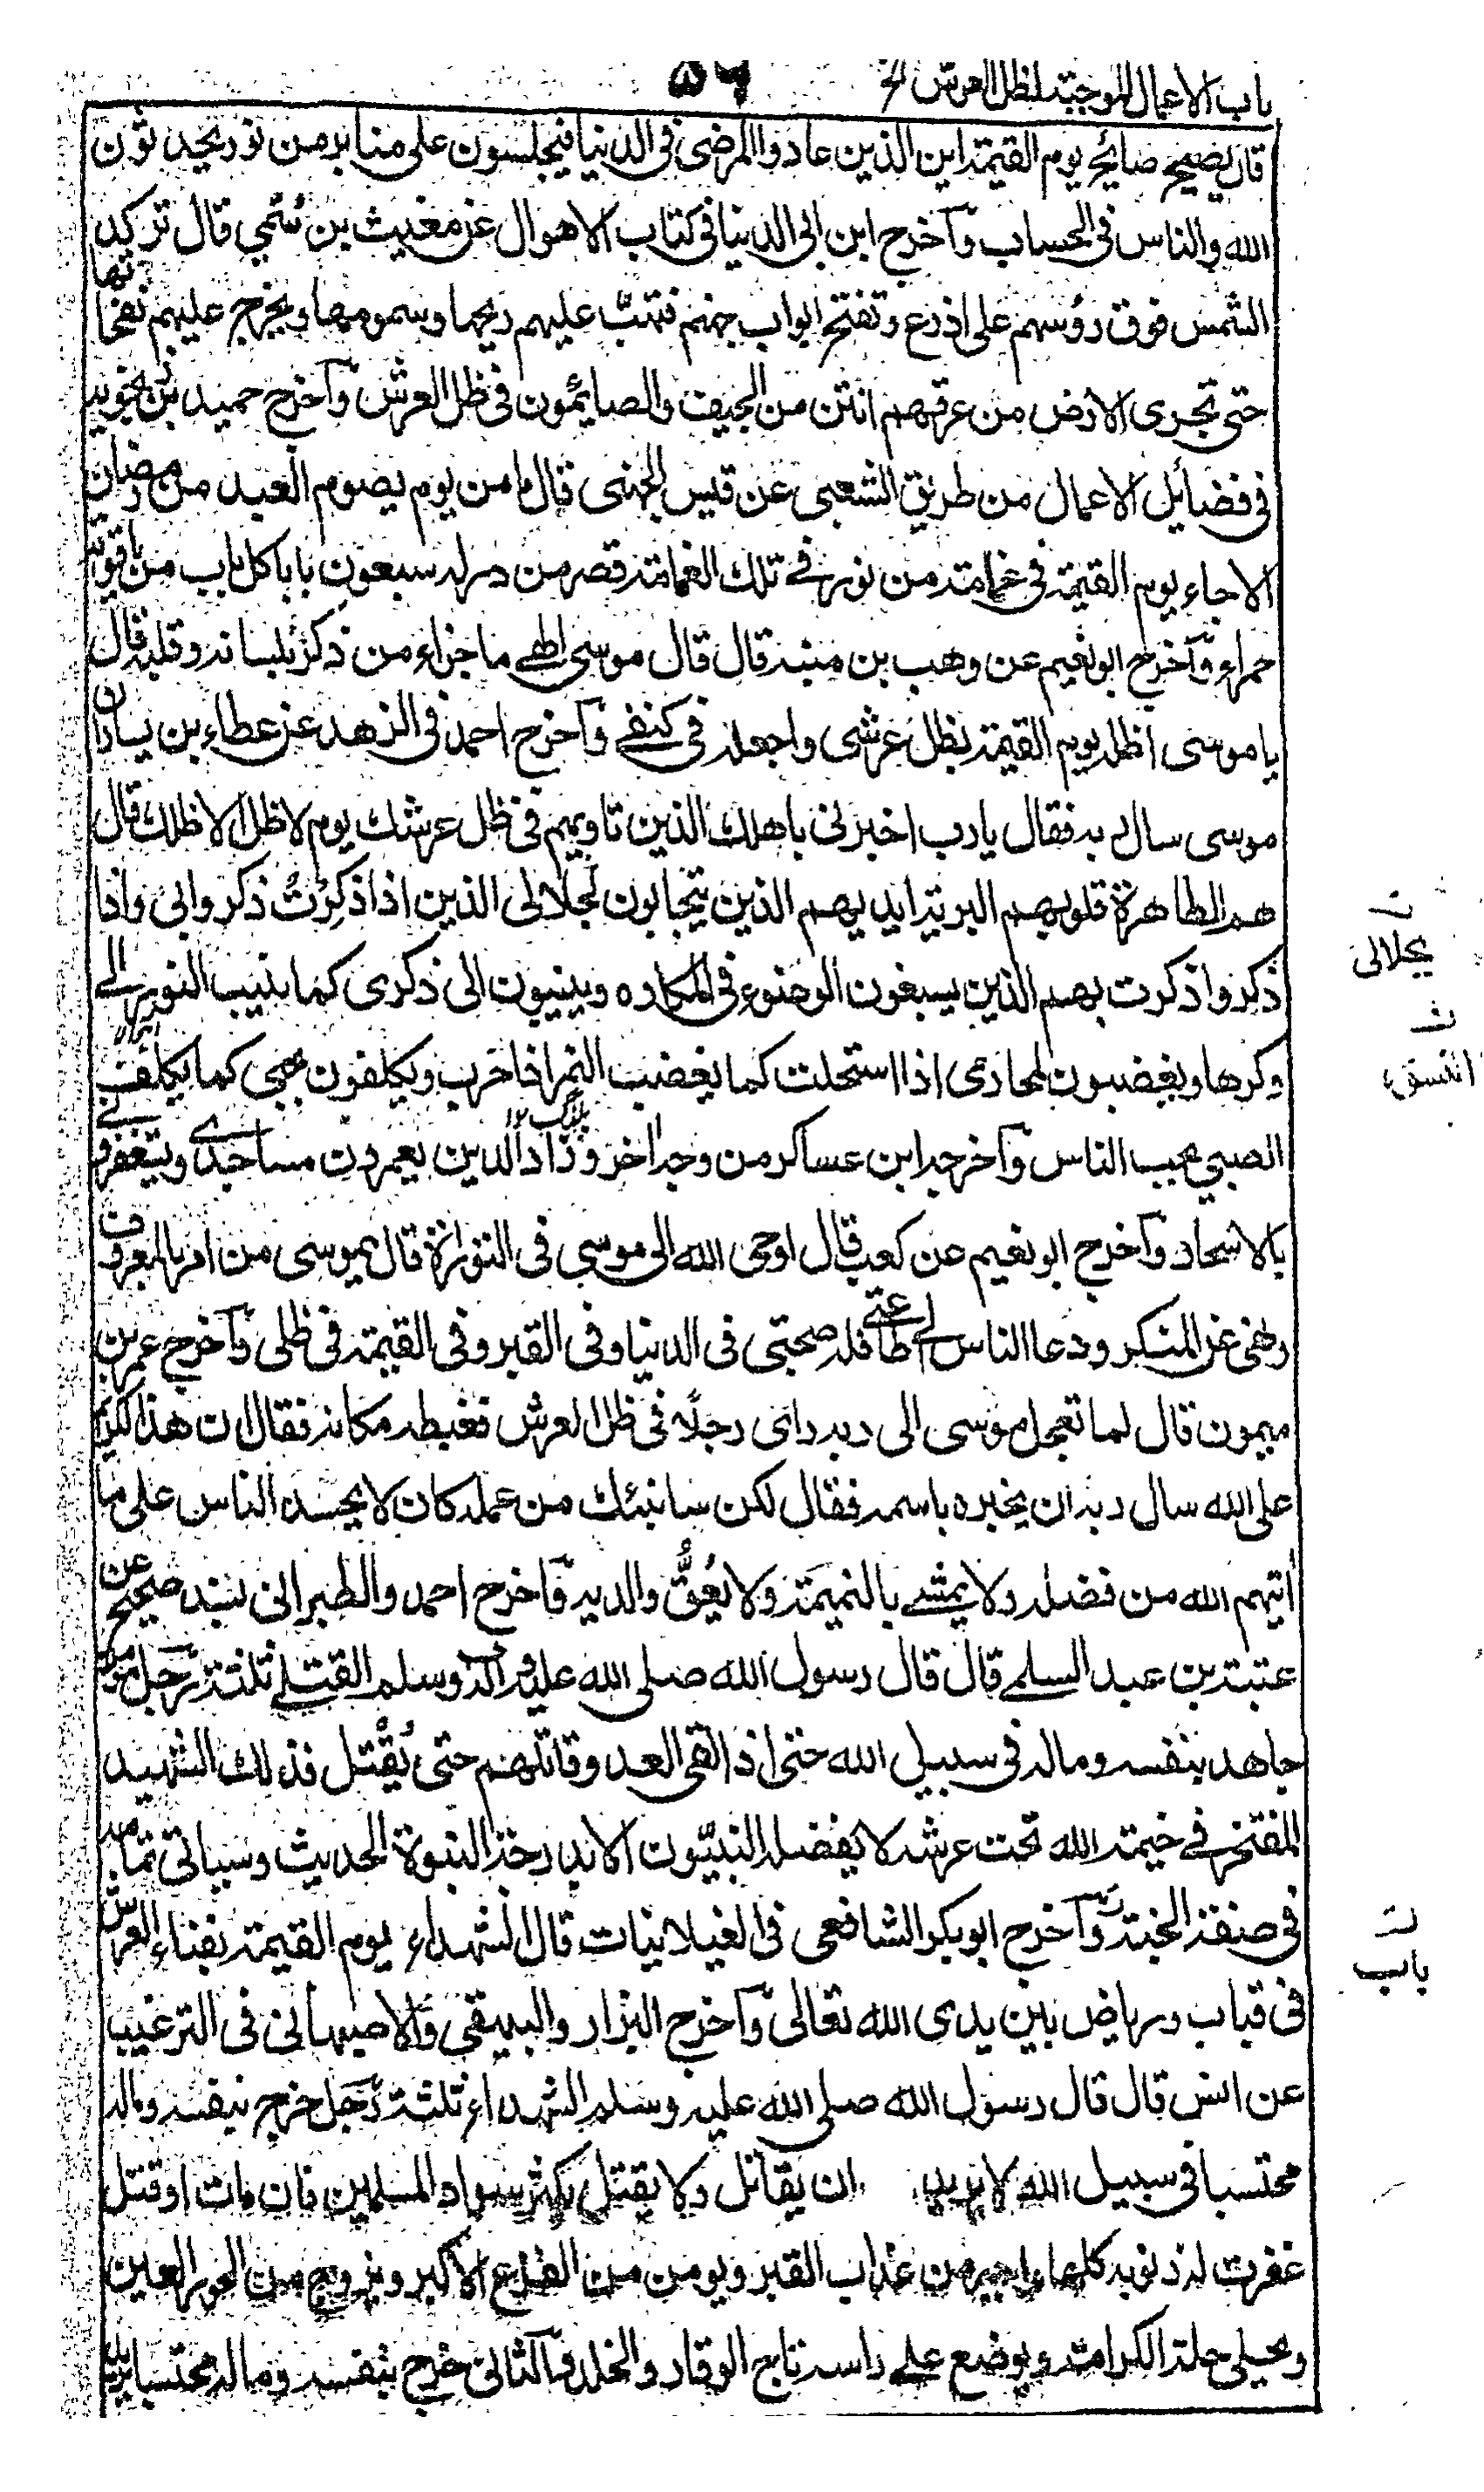 باب الاعمال الموجبة لظل العرش الخ
٥٦
قال يصيح صائح يوم القيمة اين الذين عادوا المرضى فى الدنيا فيجلسون على منابر من نور يحدثون
الله والناس فى الحساب وآخرج ابن ابى الدنيا فى كتاب الاهوال عن مغيث بن سُمّي قال تركد
الشمس فوق رؤسهم على اذرع وتفتح ابواب جهنم فتهبّ عليهم ريحها وسمومها ويخرج عليهم نفحاتها
حتى تجرى الارض من عرقهم انتن من الجيف والصائمون فى ظل العرش وآخرج حميد بن زنجويه
فى فضائل الاعمال من طريق الشعبى عن قيس الجهنى قال ما من يوم يصوم العبد من رمضان
الا جاء يوم القيمة فى غمامة من نور في تلك الغمامة قصر من در له سبعون بابا كل باب من ياقوتة
حمراء وآخرج ابو نعيم عن وهب بن منبه قال قال موسى الهي ما جزاء من ذكرك بلسانه وقلبه قال
يا موسى اظله يوم القيمة بظل عرشى واجعله فى كنفي وآخرج احمد فى الزهد عن عطاء بن يسار ان
موسى سال ربه فقال يا رب اخبرنى باهلك الذين تاويهم فى ظل عرشك يوم لا ظل الا ظلك قال
هم الطاهرة قلوبهم البرية ايديهم الذين يتحابون لجلالى الذين اذا ذكِرْتُ ذكروا بى واذا
ذكروا ذكرت بهم الذين يسبغون الوضوء فى المكاره وينيبون الى ذكرى كما ينيب النور الى
وكرها ويغضبون لمحارمى اذا استحلت كما يغضب النمر اذا حرب ويكلفون بحبى كما يكلف
الصبي بحب الناس وآخرجه ابن عساكر من وجه اخر وزاد الذين يعمرون مساجدي ويستغفرونى
بالاسحار وآخرج ابو نعيم عن كعب قال اوحى الله الى موسى فى التوراة قال يموسى من امر بالمعروف
ونهى عن المنكر ودعا الناس الى طاعتي فله صحبتى فى الدنيا وفى القبر وفى القيمة فى ظلى وآخرج عمر بن
ميمون قال لما تعجل موسى الى ربه راى رجلا فى ظل العرش فغبطه مكانه فقال ان هذا لكريم
على الله سال ربه ان يخبره باسمه فقال لكن سانبئك من عمله كان لا يحسد الناس على ما
اتيهم الله من فضله ولا يمشي بالنميمة ولا يُعِقُّ والديه وآخرج احمد والطبرانى بسند صحيح عن
عتبة بن عبد السلمي قال قال رسول الله صلى الله عليه واله وسلم القتلي ثلثة رجل مومن
جاهد بنفسه وماله فى سبيل الله حتى اذ القى العدو قاتلهم حتى يُقتل فذلك الشهيد
المفتخر في خيمة الله تحت عرشه لا يفضله النبيّون الا بدرجة النبوة الحديث وسياتى تمامه
فى صفة الجنة وآخرج ابوبكر الشافعى فى الغيلانيات قال الشهداء يوم القيمة بفناء العرش
فى قباب ورياض بين يدى الله تعالى وآخرج البزار والبيهقي والاصبهانى فى الترغيب
عن انس قال قال رسول الله صلى الله عليه وسلم الشهداء ثلثة رجل خرج بنفسه وماله
محتسبا فى سبيل الله لا يريد ان يقاتل ولا يقتل يكثر سواد المسلمين فان مات او قتل
غفرت له ذنوبه كلها واجير من عذاب القبر ويومن من الفزع الاكبر ويزوج من الحور العين
ويحلى حلة الكرامة ويوضع على راسه تاج الوقار والخلد والثانى خرج بنفسه وماله محتسبا يريد
بجلالى
باب